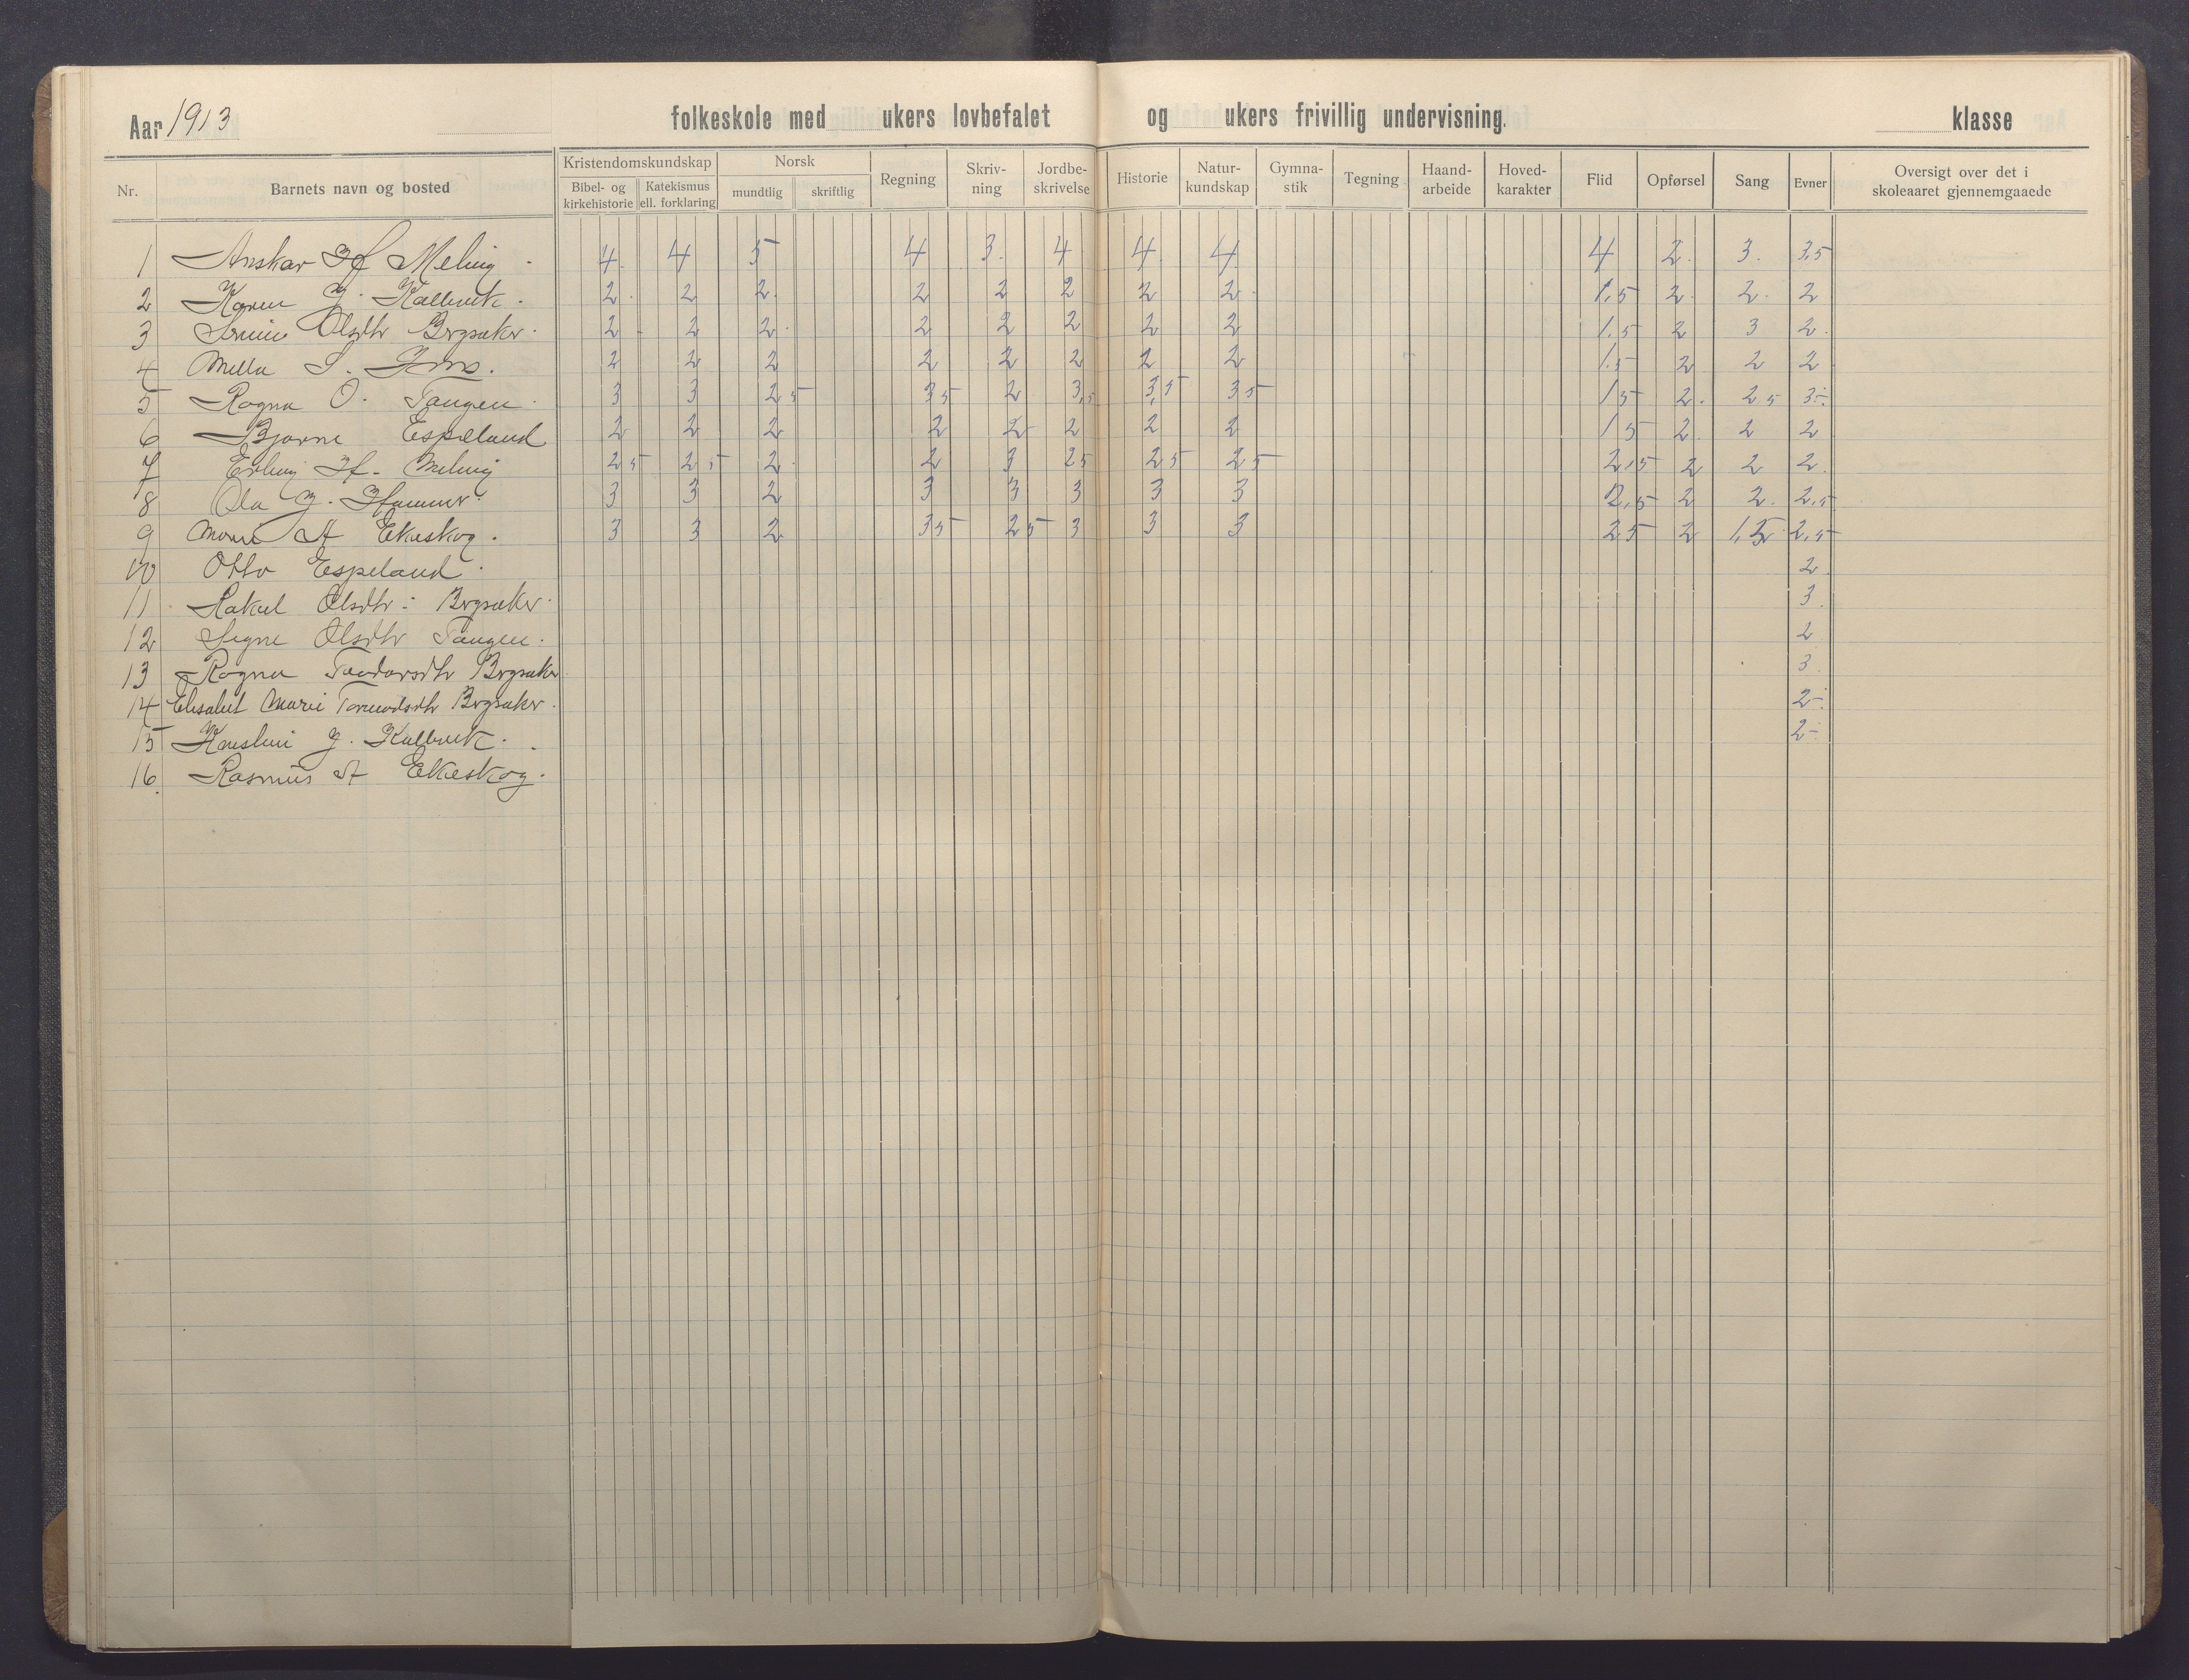 Aar 1913 folkeskole med ukers lovbefalet og ukers frivillig undervisning. klasse
Nr. Barnets navn og bosted Kristendomskundskap Norsk Regning Skriv-ning Jordbe-skrivelse Historie Natur-kundskap Gymna-stik Tegning Haand-arbeide Hoved-karakter Flid Opførsel Sang Evner Oversigt over det i skoleaaret gjennemgaaede
Bibel- og kirkehistorie Katekismus ell. forklaring mundtlig skriftlig
1 Anskar H Meling 4. 4 5 4 3. 4 4 4 4 2. 3. 3,5
2 Karen G. Kallevik. 2. 2 2. 2 2 2 2 2. 1,5 2. 2. 2
3 Olsdtr Brgsaker. 2 2 2. 2 2 2 2 2 1,5 2 3 2.
4 Mella S. Ims. 2 2 2 2 2 2 2 2 1.5 2 2 2
5 Ragna O. Tangen. 3 3 2 5 3 5 2 3,5 3,5 3 5 1 5 2. 2 5 3÷
6 Bjarne Espeland 2 2 2 2 2 2 2 2 1 5 2. 2 2
7 Erling H. Meling 2 5 2 5 2. 2 3 2 5 2 5 2 5 2,5 2 2 2.
8 Ola G. Hammer. 3 3 2 3 3 3 3 3 2,5 2 2. 2,5
9 A Ekeskog. 3 3 2 3 5 2 5 3 3 3 2 5 2 1,5 2,5
10 Otto Espeland. 2
11 Rakel Olsdtr: Brgsaker. 3.
12 Signe Olsdtr Tangen. 2
13 Ragna Brgsaker 3.
14 Elisabet Marie Brgsaker. 2÷
15 G. Kallevik. 2÷
16. Rasmus A Ekeskog.